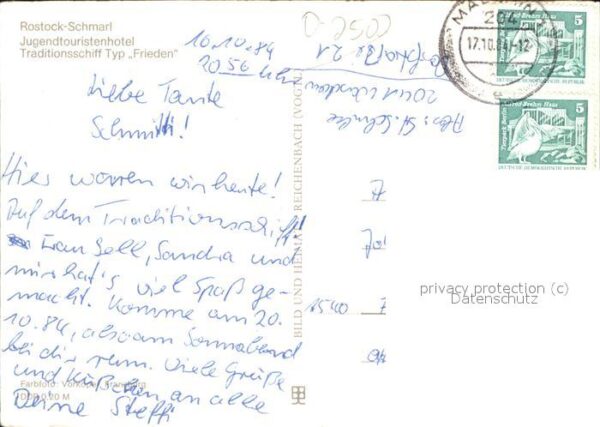 Rostock-Schmarl
Jugendtouristenhotel
Traditionsschiff Typ „Frieden"
10.10.84
20 56 Uhr
Liebe Tante
Schmitti!
Hier waren wir heute!
Auf dem Traditionsschiff!
Frau Sell, Sandra und
mir hat's viel Spaß ge-
macht. Komme am 20.
10.84, also am Sonnabend
bei dir rum. Viele Grüße
und Küßchen an alle
Deine Steffi
D-2500
Abs: St. Schulze
204
17.10.84-12
5
DEUTSCHE DEMOKRATISCHE REPUBLIK
5
DEUTSCHE DEMOKRATISCHE REPUBLIK
BILD UND HEIMAT REICHENBACH (VOGTL
privacy protection (c)
Datenschutz
Farbfoto: Vorköper
DDR 0,20 M